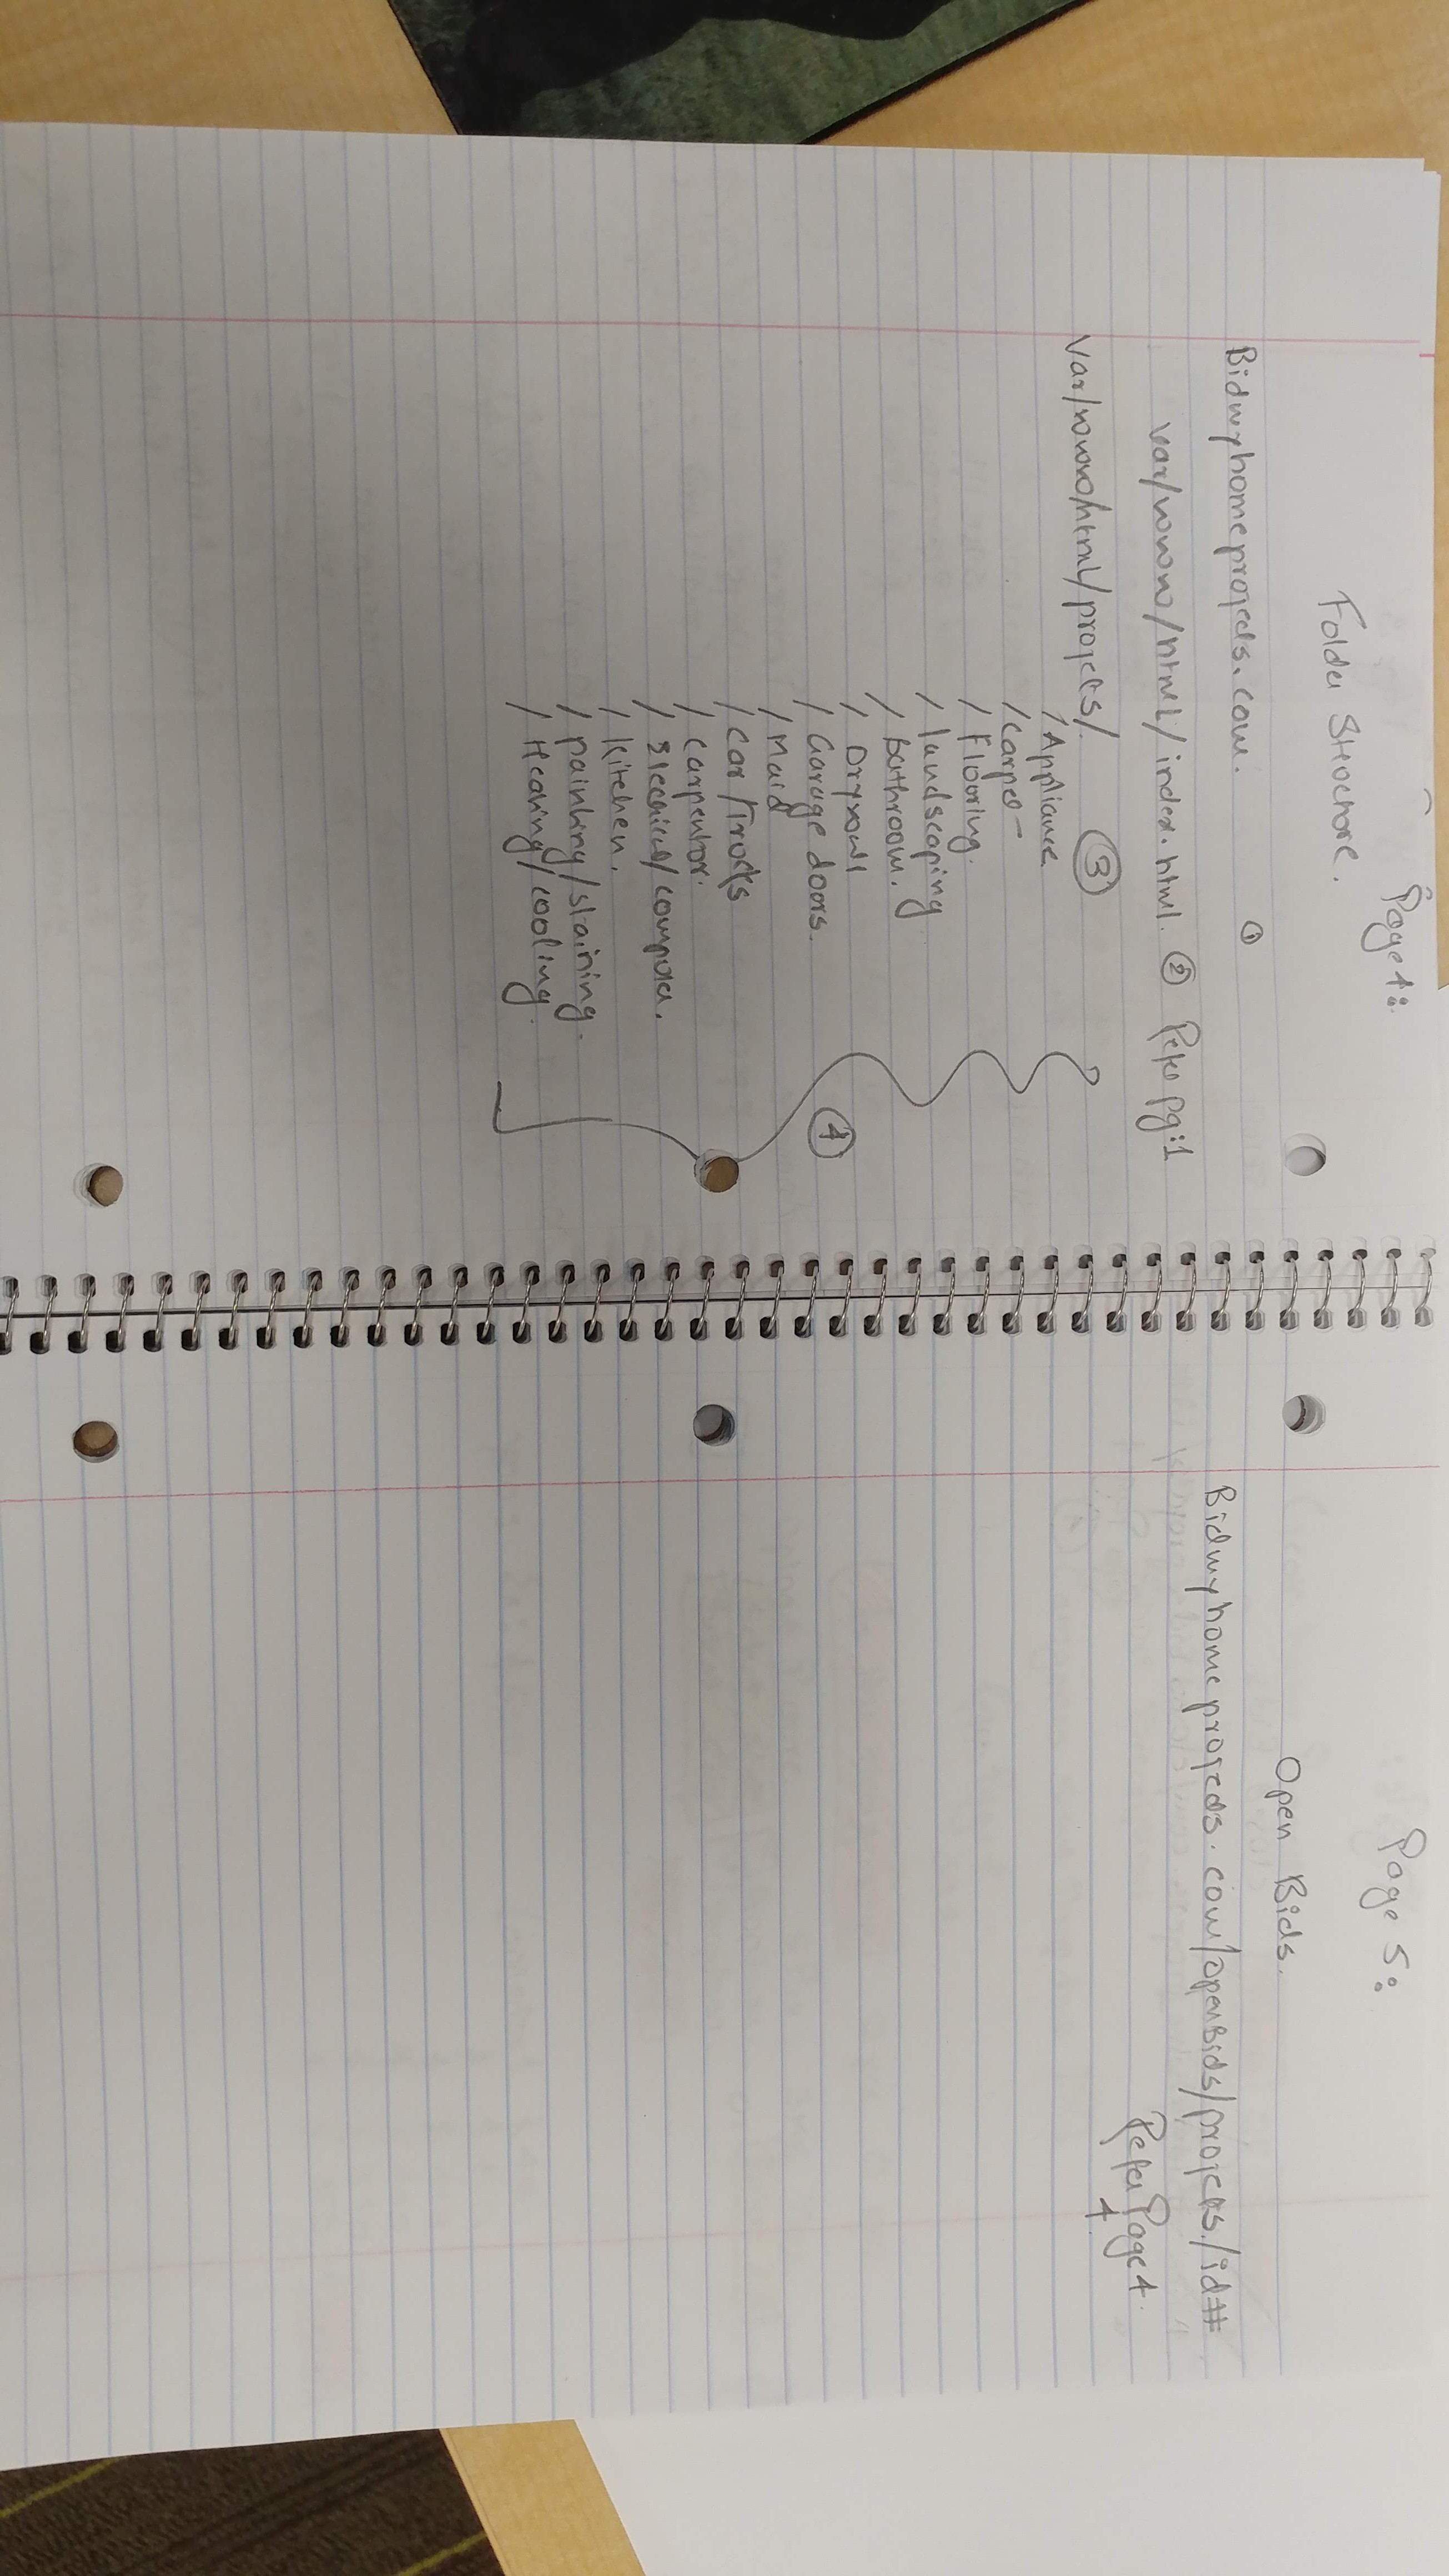 Page 4:
Folder Structure.
Bidmyhomeprojects.com. ①
var/www/html/index.html. ② Refer pg:1
Var/www/html/projects/. ③
/Appliance
/Carpet
/ Flooring.
/ landscaping
/ Bathroom.
/ Drywall
/ Garage doors.
/ Maid
/ Car/Trucks
/ Carpentor.
/ Electrical/computer.
/ Kitchen.
/ painting/staining.
/ Heating/cooling.
④
Page 5:
Open Bids.
Bidmyhomeprojects.com/openBids/projects./id#
Refer Page 4.
4.